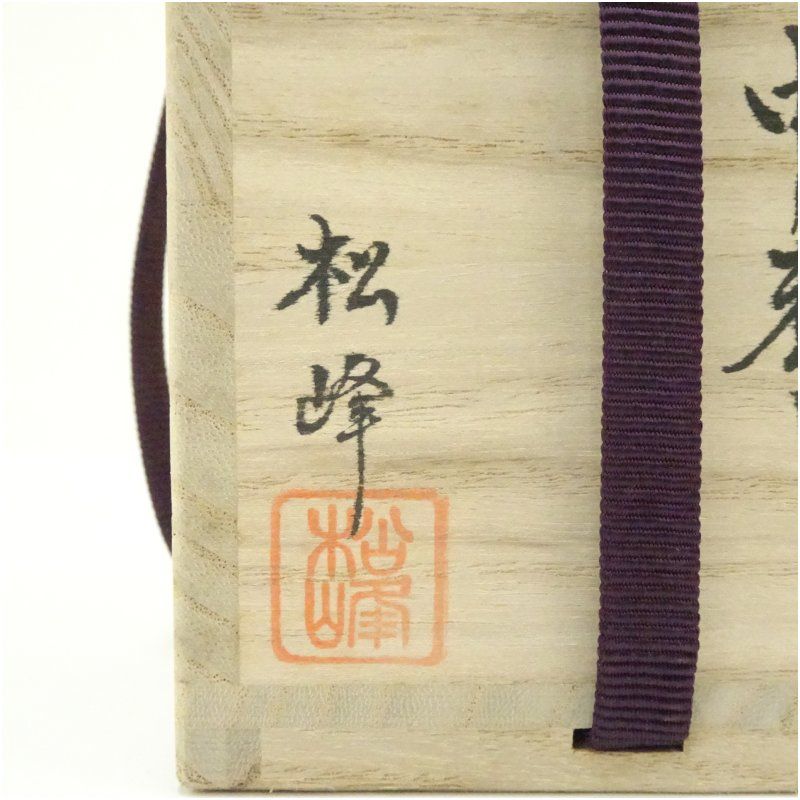 松峰
松峰